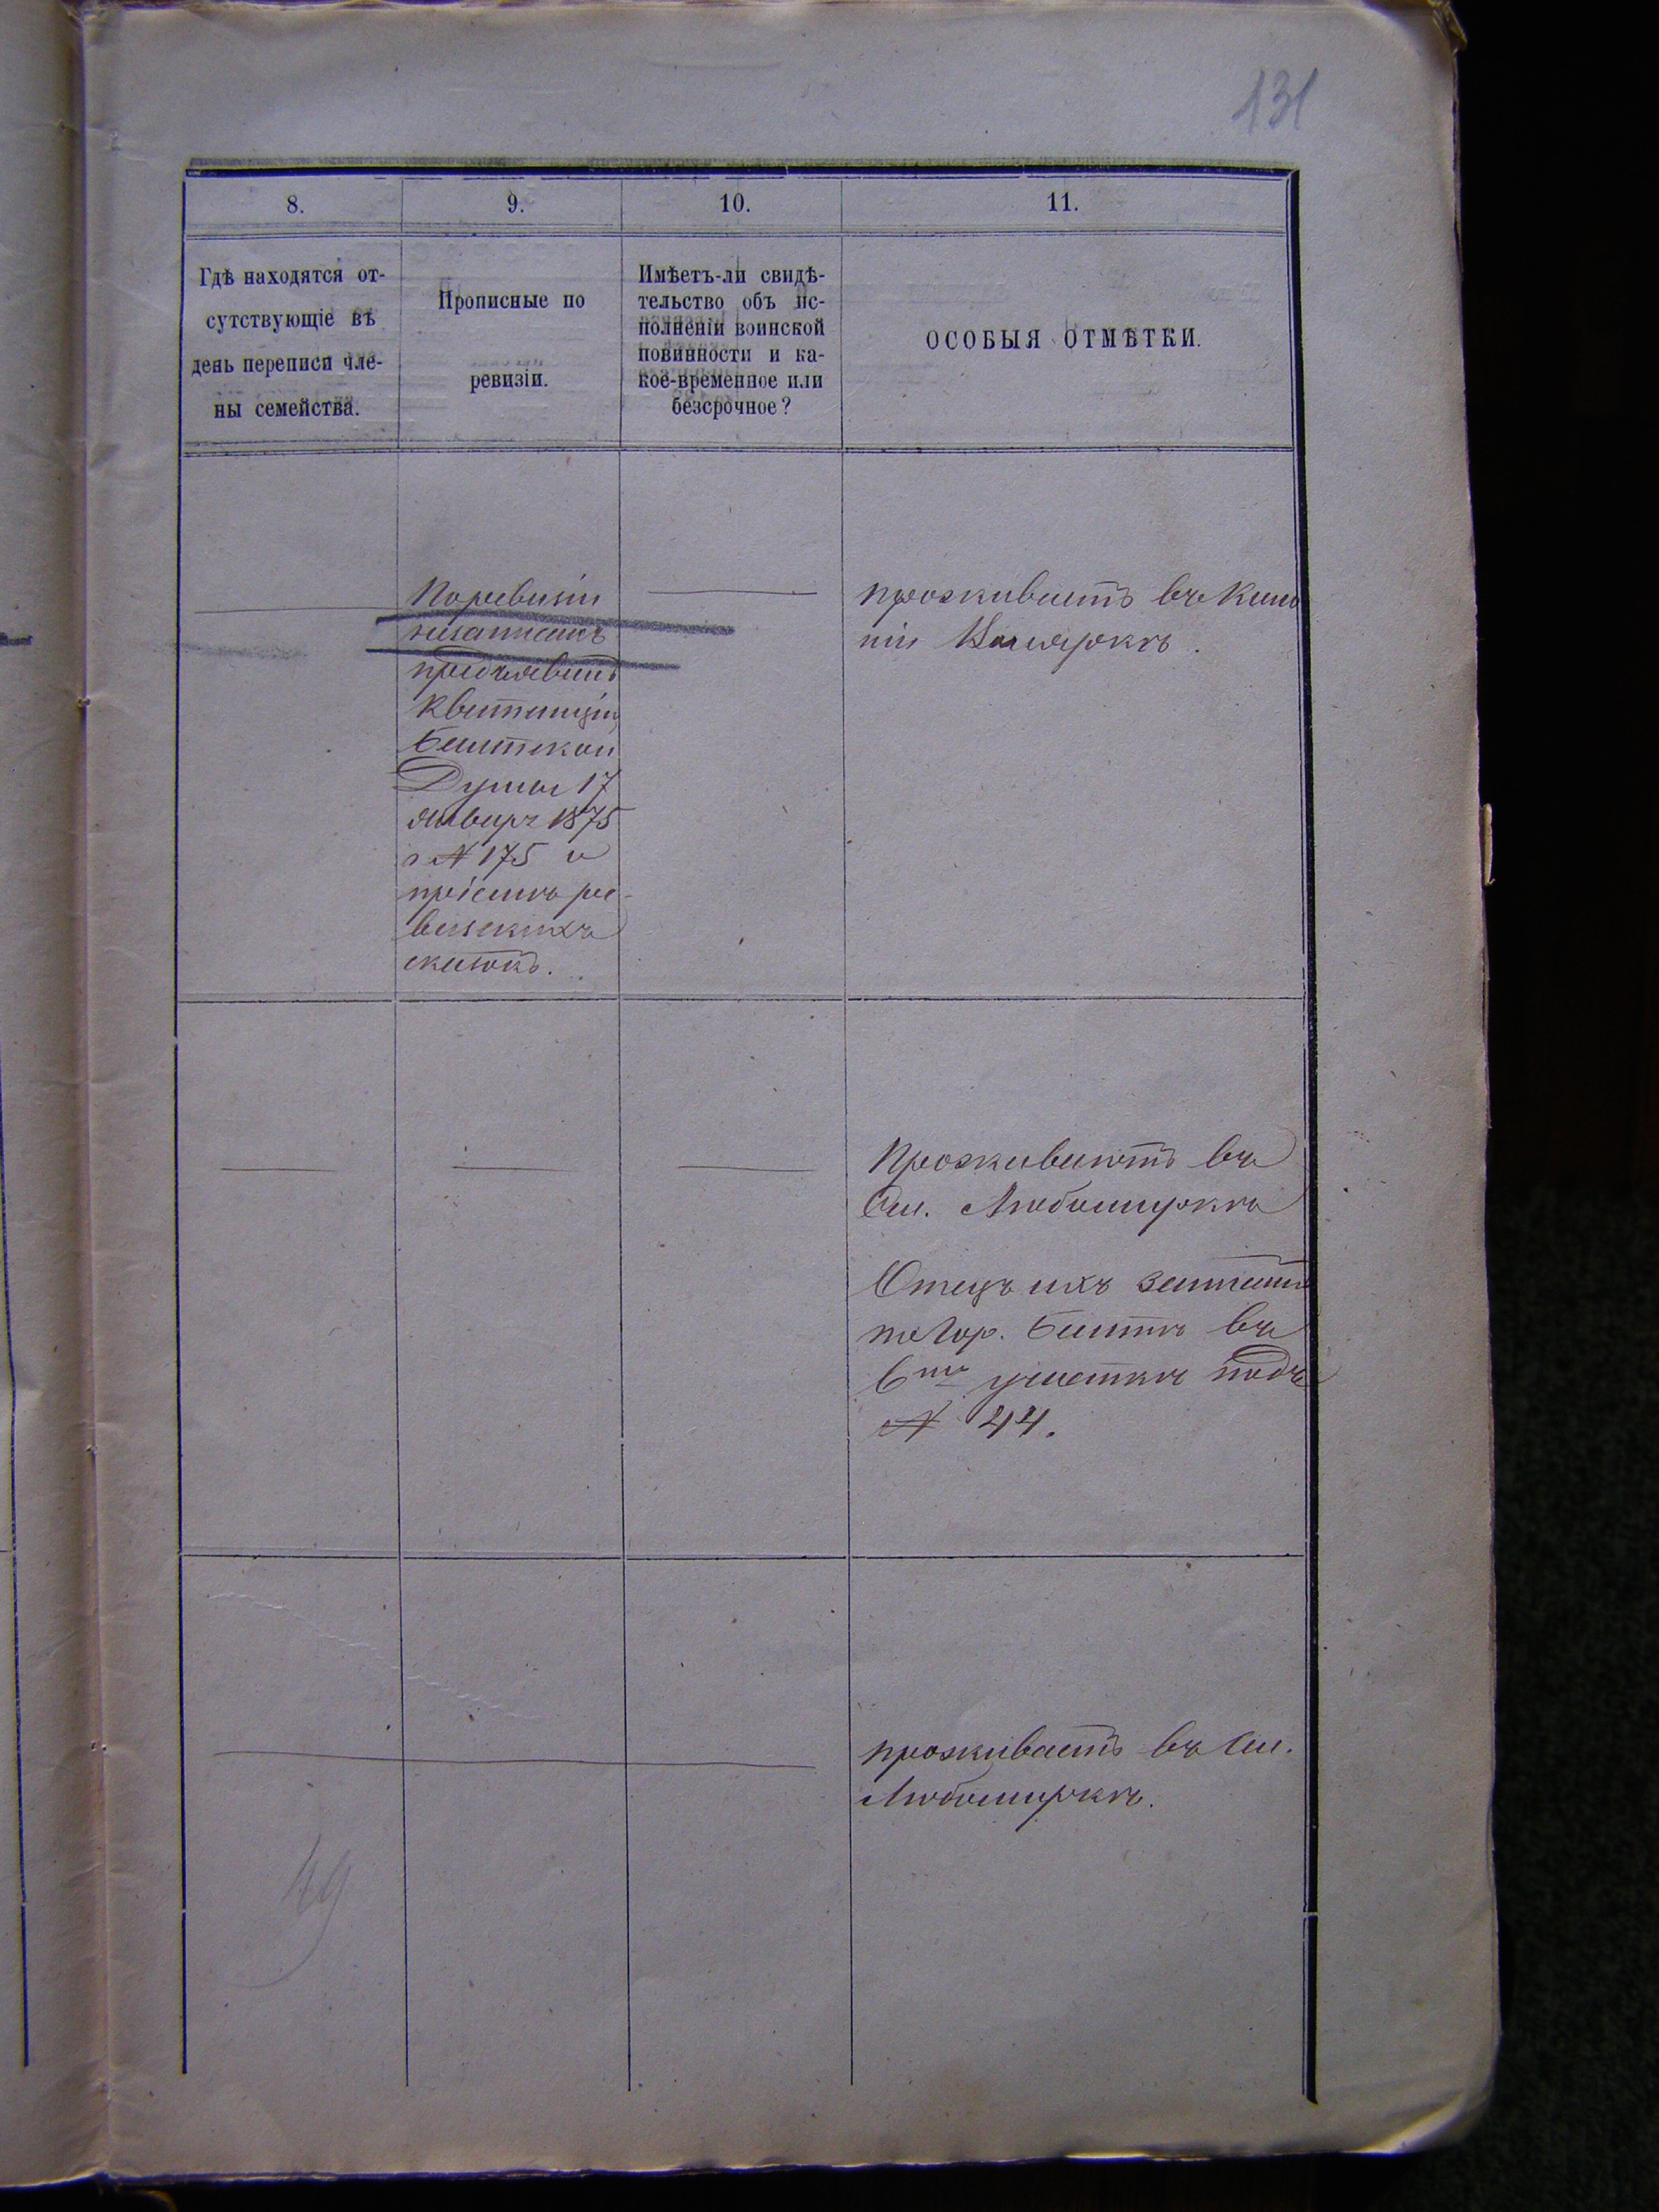 131
8.
9.
10.
11.
Гдѣ находятся от-
сутствующіе въ
день переписи чле-
ны семейства.
Прописные по
ревизіи.
Имѣетъ-ли свидѣ-
тельство объ ис-
полненіи воинской
повинности и ка-
кое-временное или
безсрочное?
ОСОБЫЯ ОТМѢТКИ.
По ревизіи
незаписанъ
предъявилъ
квитанцію
Балтской
Думы 17
января 1875
г № 175 и
пріемъ ре-
визскихъ
сказокъ.
проживаетъ въ
Проживаютъ въ
См. Любомиркѣ
Отецъ ихъ записанъ
по гор. Балтѣ въ
6мъ участкѣ подъ
№ 44.
проживаетъ въ См.
Любомиркѣ.
49